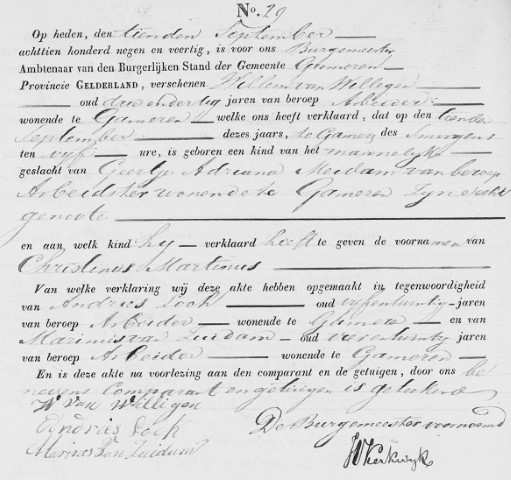 No. 29
Op heden, den tienden September
achttien honderd negen en veertig, is voor ons Burgemeester
Ambtenaar van den Burgerlijken Stand der Gemeente Gameren
Provincie GELDERLAND, verschenen Willem van Willigen
oud drie en dertig jaren van beroep Arbeider
wonende te Gameren welke ons heeft verklaard, dat op den tienden
September dezes jaars, te Gameren des Smorgens
ten vyf ure, is geboren een kind van het mannelyk
geslacht van Geertje Adriana Meidam van beroep
Arbeidster wonende te Gameren Zyne echt
genoote
en aan, welk kind hy verklaard heeft te geven de voornamen van
Christinus Martinus
Van welke verklaring wij deze akte hebben opgemaakt in tegenwoordigheid
van Andries oud vyfentwintig jaren
van beroep Arbeider wonende te Gameren en van
Marinus van Zuidam oud jaren
van beroep Arbeider wonende te Gameren
En is deze akte na voorlezing aan den comparant en de getuigen, door ons be
nevens Comparant en getuigen is geteekend
W van Willigen
Andras
Marinus van Zuidam
De Burgemeester voornoemd